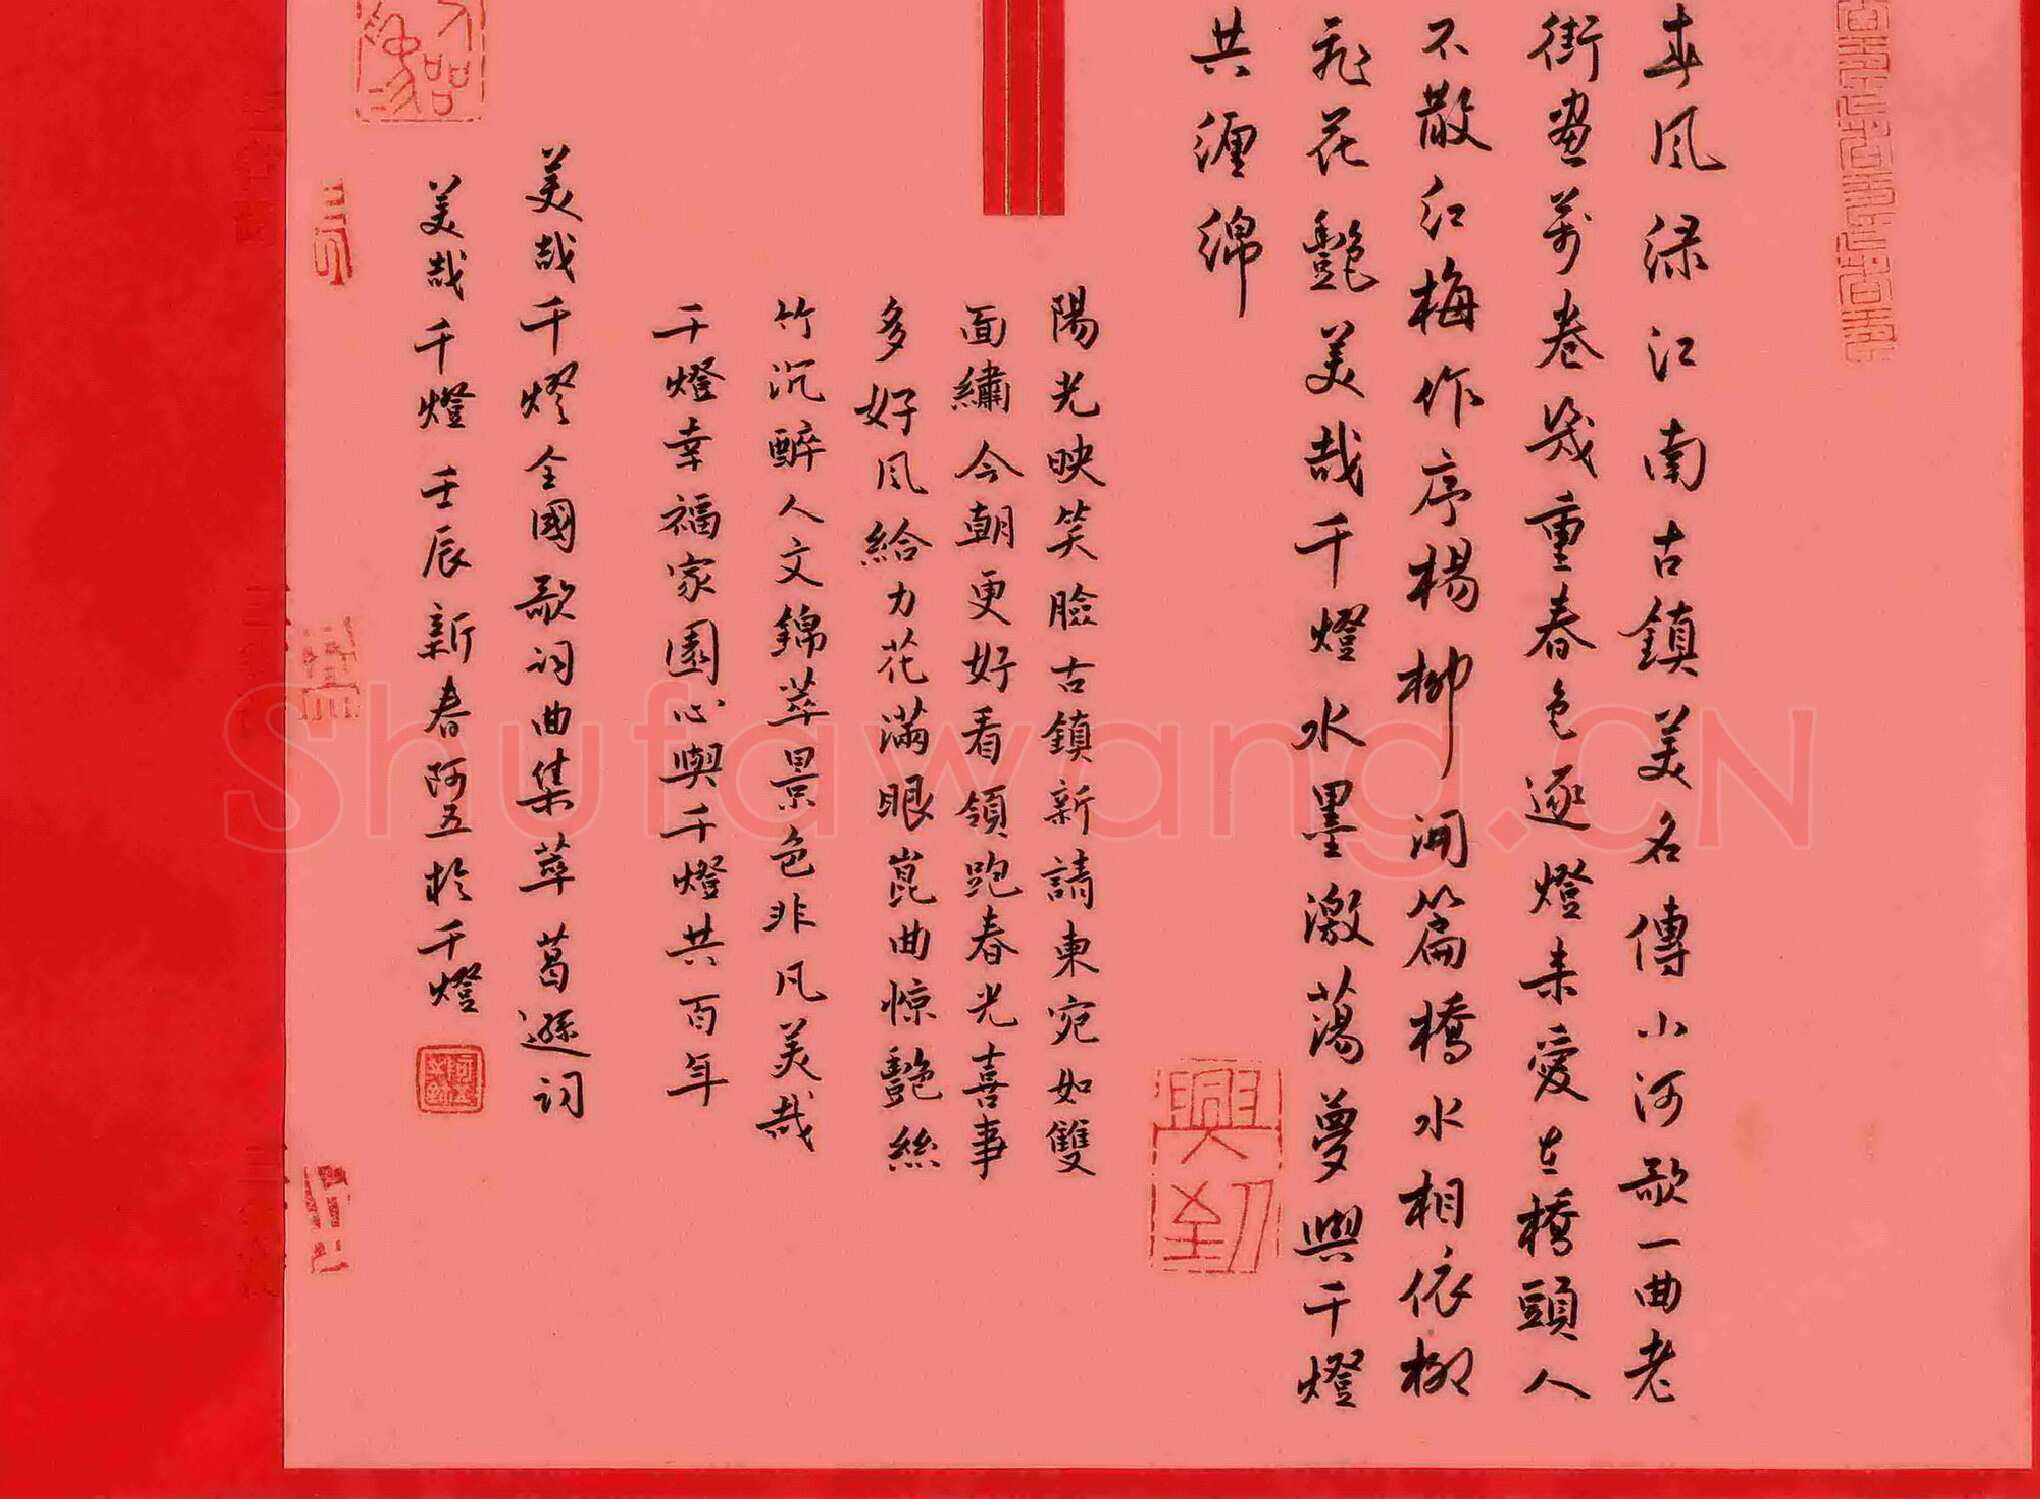 春风绿江南古鎮美名傳小河歌一曲老
街画萬卷幾重春色逐燈来愛在橋頭人
不散红梅作序楊柳開篇橋水相依柳
飛花艷美哉千燈水墨激蕩夢與千燈
共缠绵
陽光映笑臉古鎮新請東宛如雙
面繡今朝更好看領跑春光喜事
多好风給力花滿眼崑曲惊艷絲
竹沉醉人文錦萃景色非凡美哉
千燈幸福家園心與千燈共百年
美哉千燈全國歌词曲集萃葛遜词
美哉千燈壬辰新春阿五於千燈
興到
Shufawang.CN